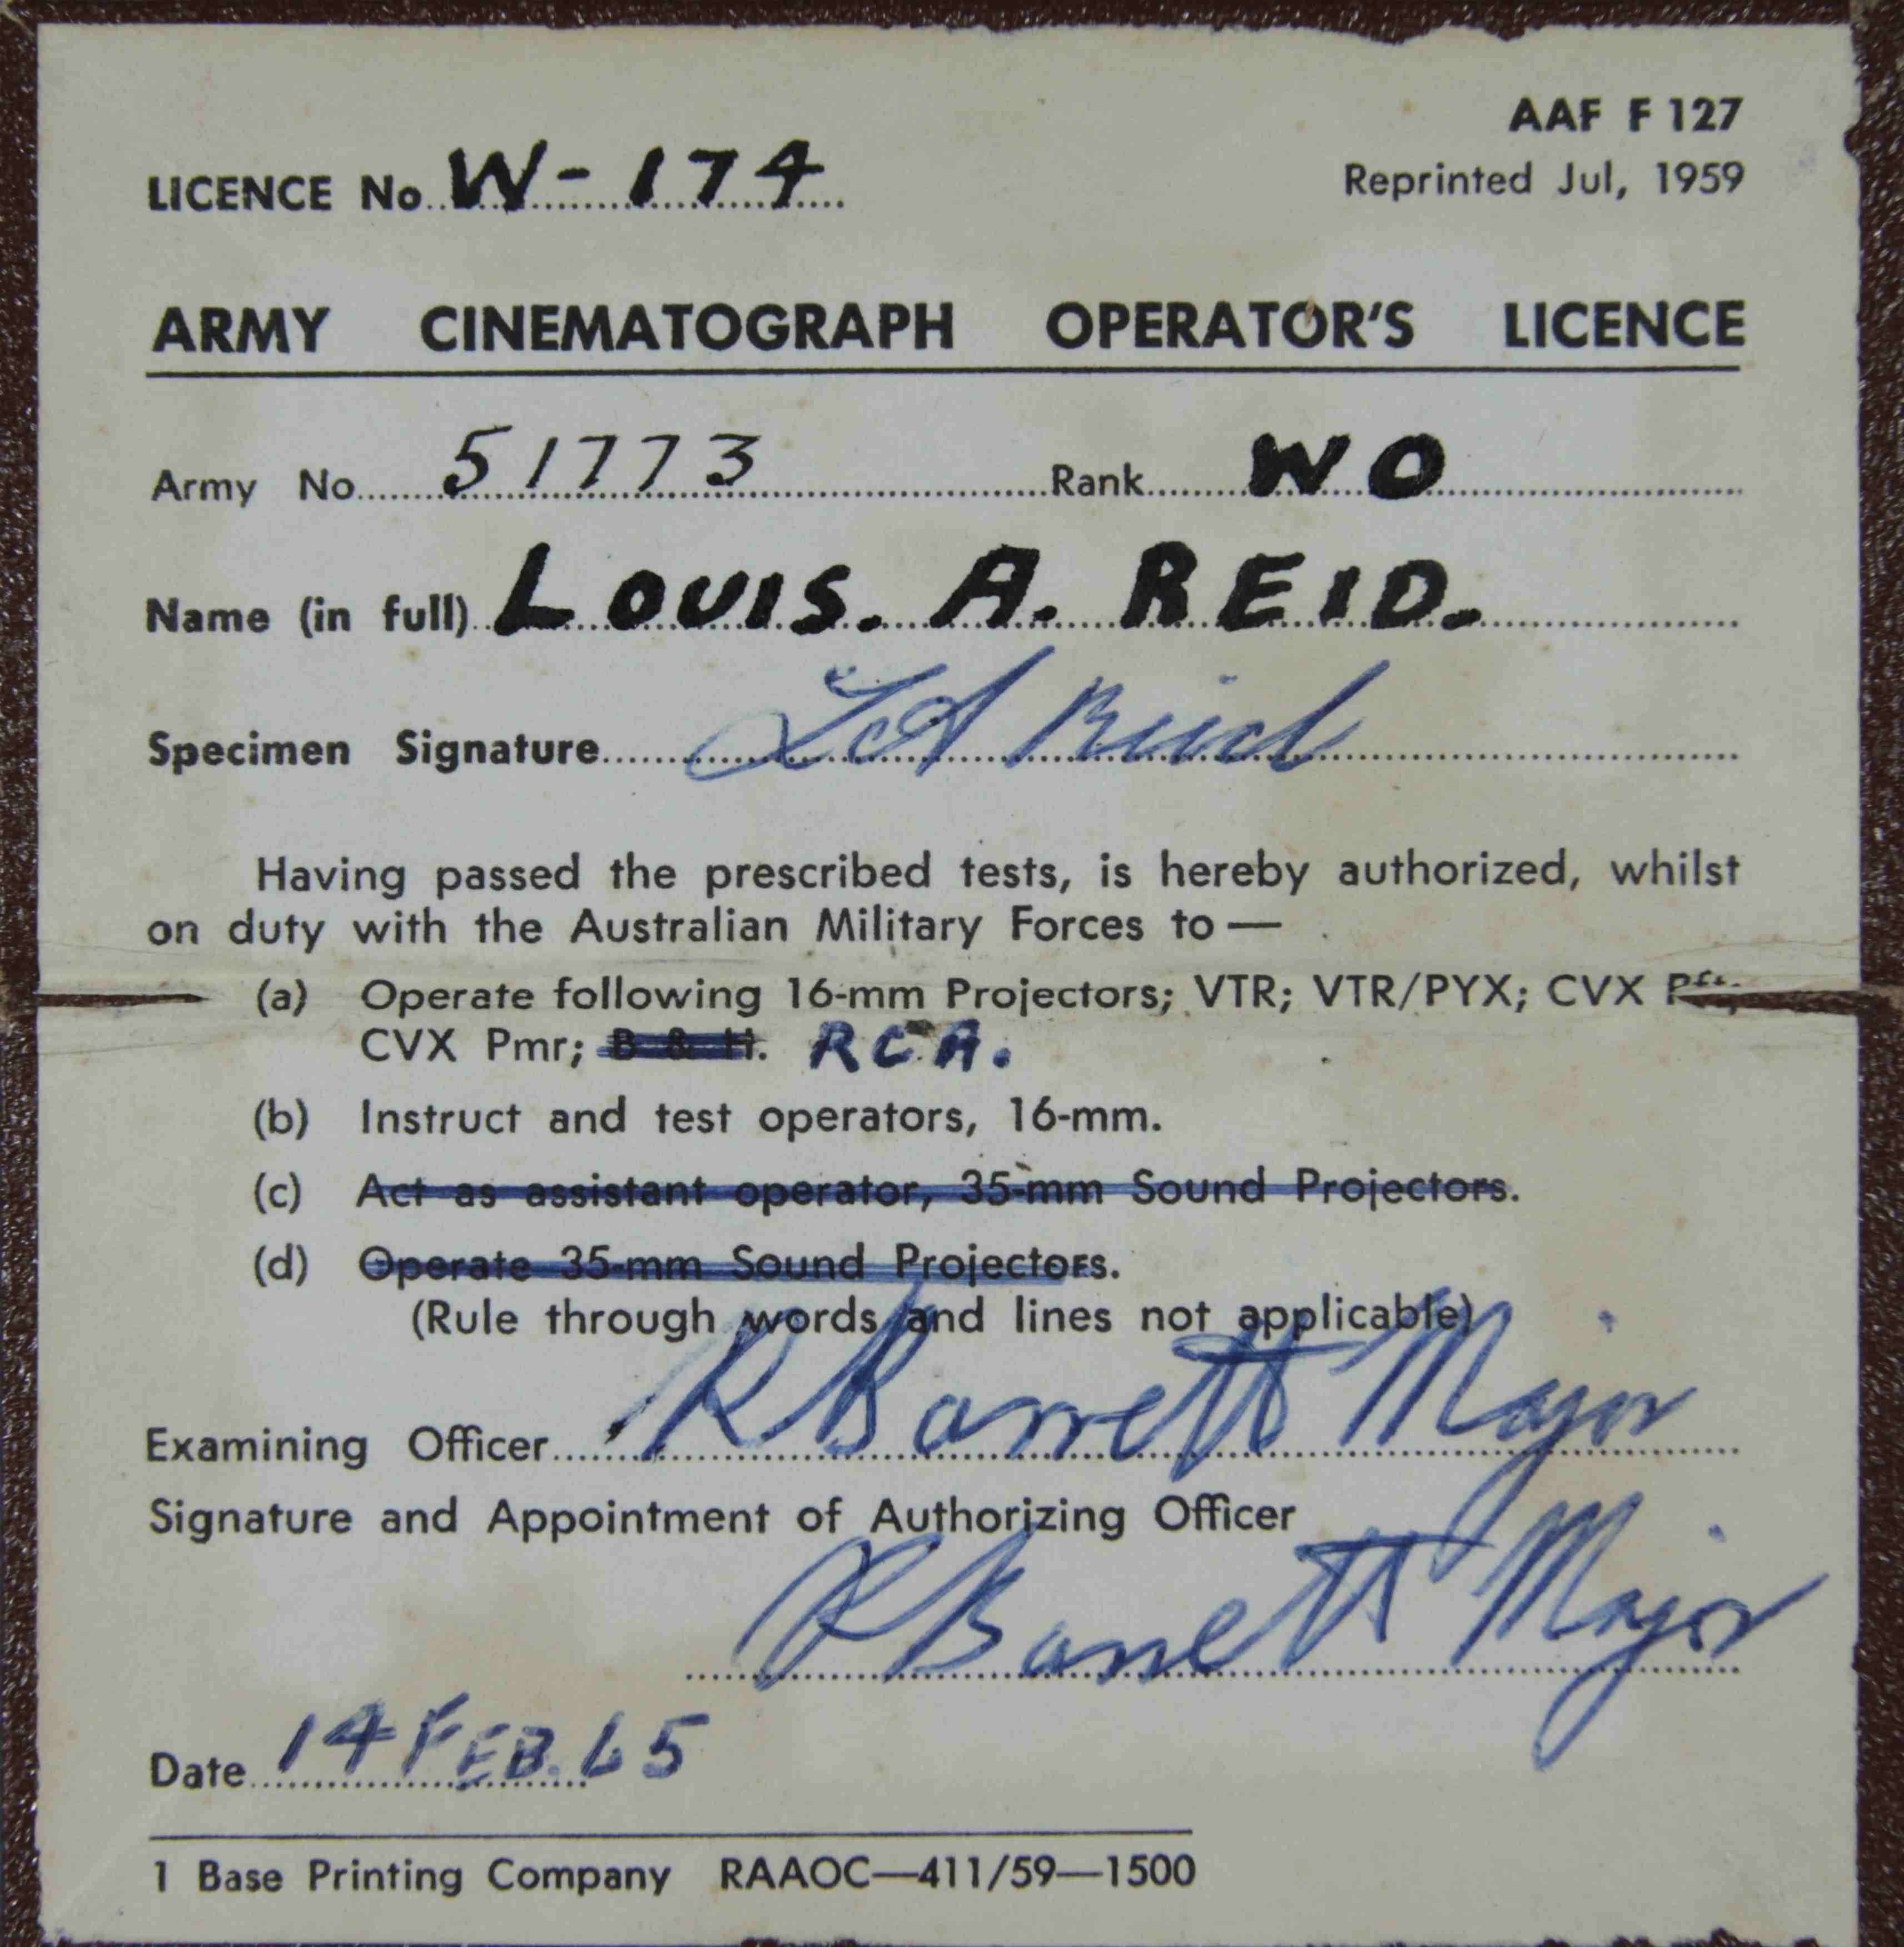 AAF F 127
LICENCE No. W-174
Reprinted Jul, 1959
ARMY CINEMATOGRAPH OPERATOR'S LICENCE
Army No. 51773 Rank WO
Name (in full) LOUIS. A. REID.
Specimen Signature L A Reid
Having passed the prescribed tests, is hereby authorized, whilst
on duty with the Australian Military Forces to —
(a) Operate following 16-mm Projectors; VTR; VTR/PYX; CVX
CVX Pmr; B & H. RCA.
(b) Instruct and test operators, 16-mm.
(c) Act as assistant operator, 35-mm Sound Projectors.
(d) Operate 35-mm Sound Projectors.
(Rule through words and lines not applicable)
Examining Officer R Barrett Major
Signature and Appointment of Authorizing Officer
R Barrett Major
Date 14 FEB. 65
1 Base Printing Company RAAOC—411/59—1500